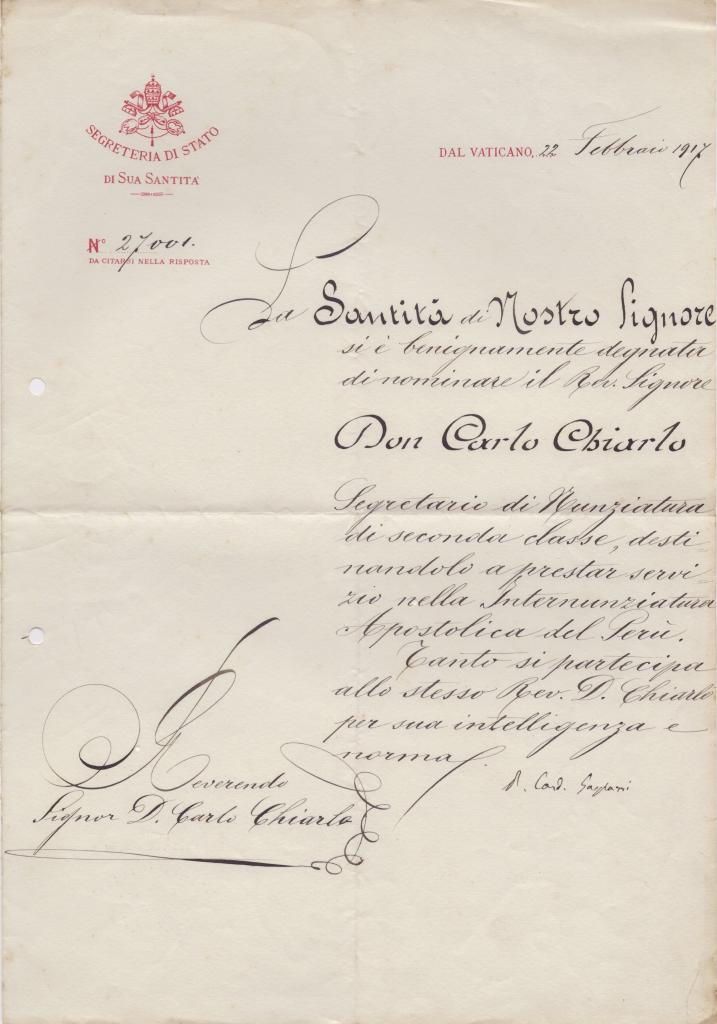 SEGRETERIA DI STATO
DI SUA SANTITA'
DAL VATICANO, 22 Febbraio 1917
Nº 27001.
DA CITARSI NELLA RISPOSTA
La Santità di Nostro Signore
si è benignamente degnata
di nominare il Rev. Signore
Don Carlo Chiarlo
Segretario di Nunziatura
di seconda classe, desti-
nandolo a prestar servi-
zio nella Internunziatura
Apostolica del Perù.
Tanto si partecipa
allo stesso Rev. D. Chiarlo
per sua intelligenza e
norma.
P. Card. Gasparri
Reverendo
Signor D. Carlo Chiarlo